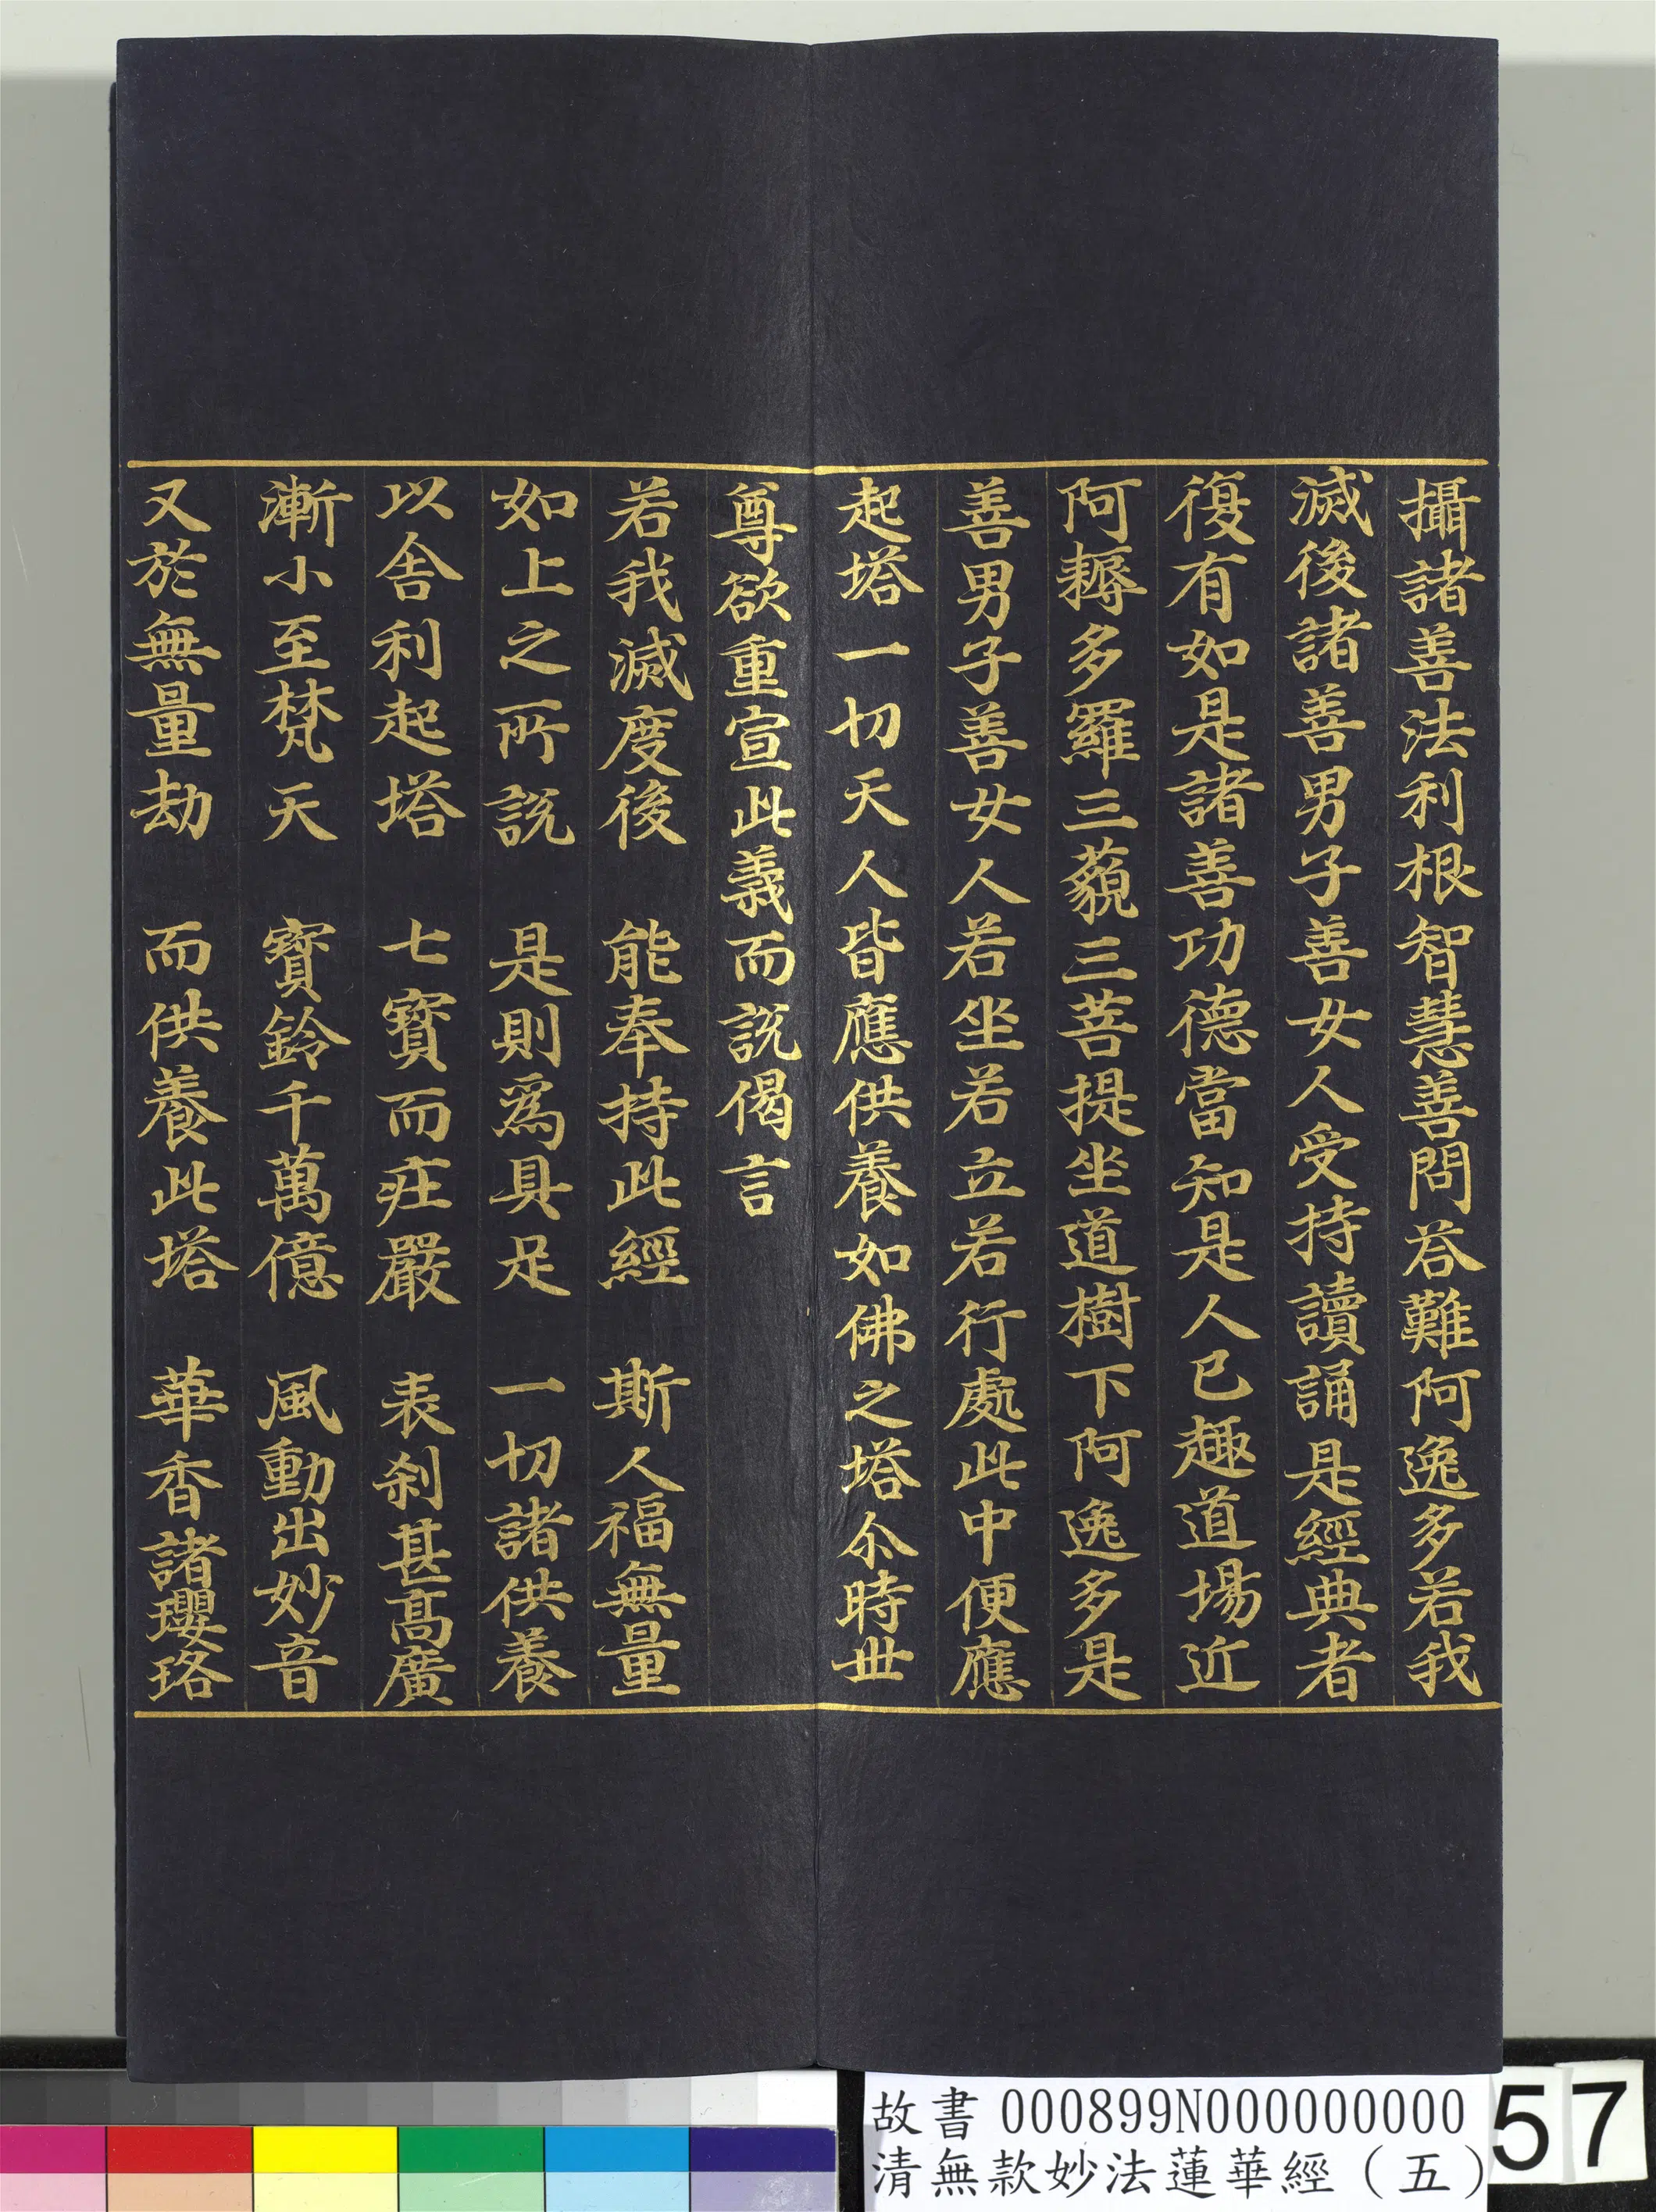 攝諸善法利根智慧善問荅難阿逸多若我
滅後諸善男子善女人受持讀誦是經典者
復有如是諸善功德當知是人已趣道場近
阿耨多羅三藐三菩提坐道樹下阿逸多是
善男子善女人若坐若立若行處此中便應
起塔一切天人皆應供養如佛之塔尒時世
尊欲重宣此義而說偈言
若我滅度後 能奉持此經 斯人福無量
如上之所說 是則爲具足 一切諸供養
以舍利起塔 七寳而莊嚴 表刹甚髙廣
漸小至梵天 寳鈴千萬億 風動出妙音
又於無量劫 而供養此塔 華香諸瓔珞
故書 000899N000000000
清無款妙法蓮華經（五）
57